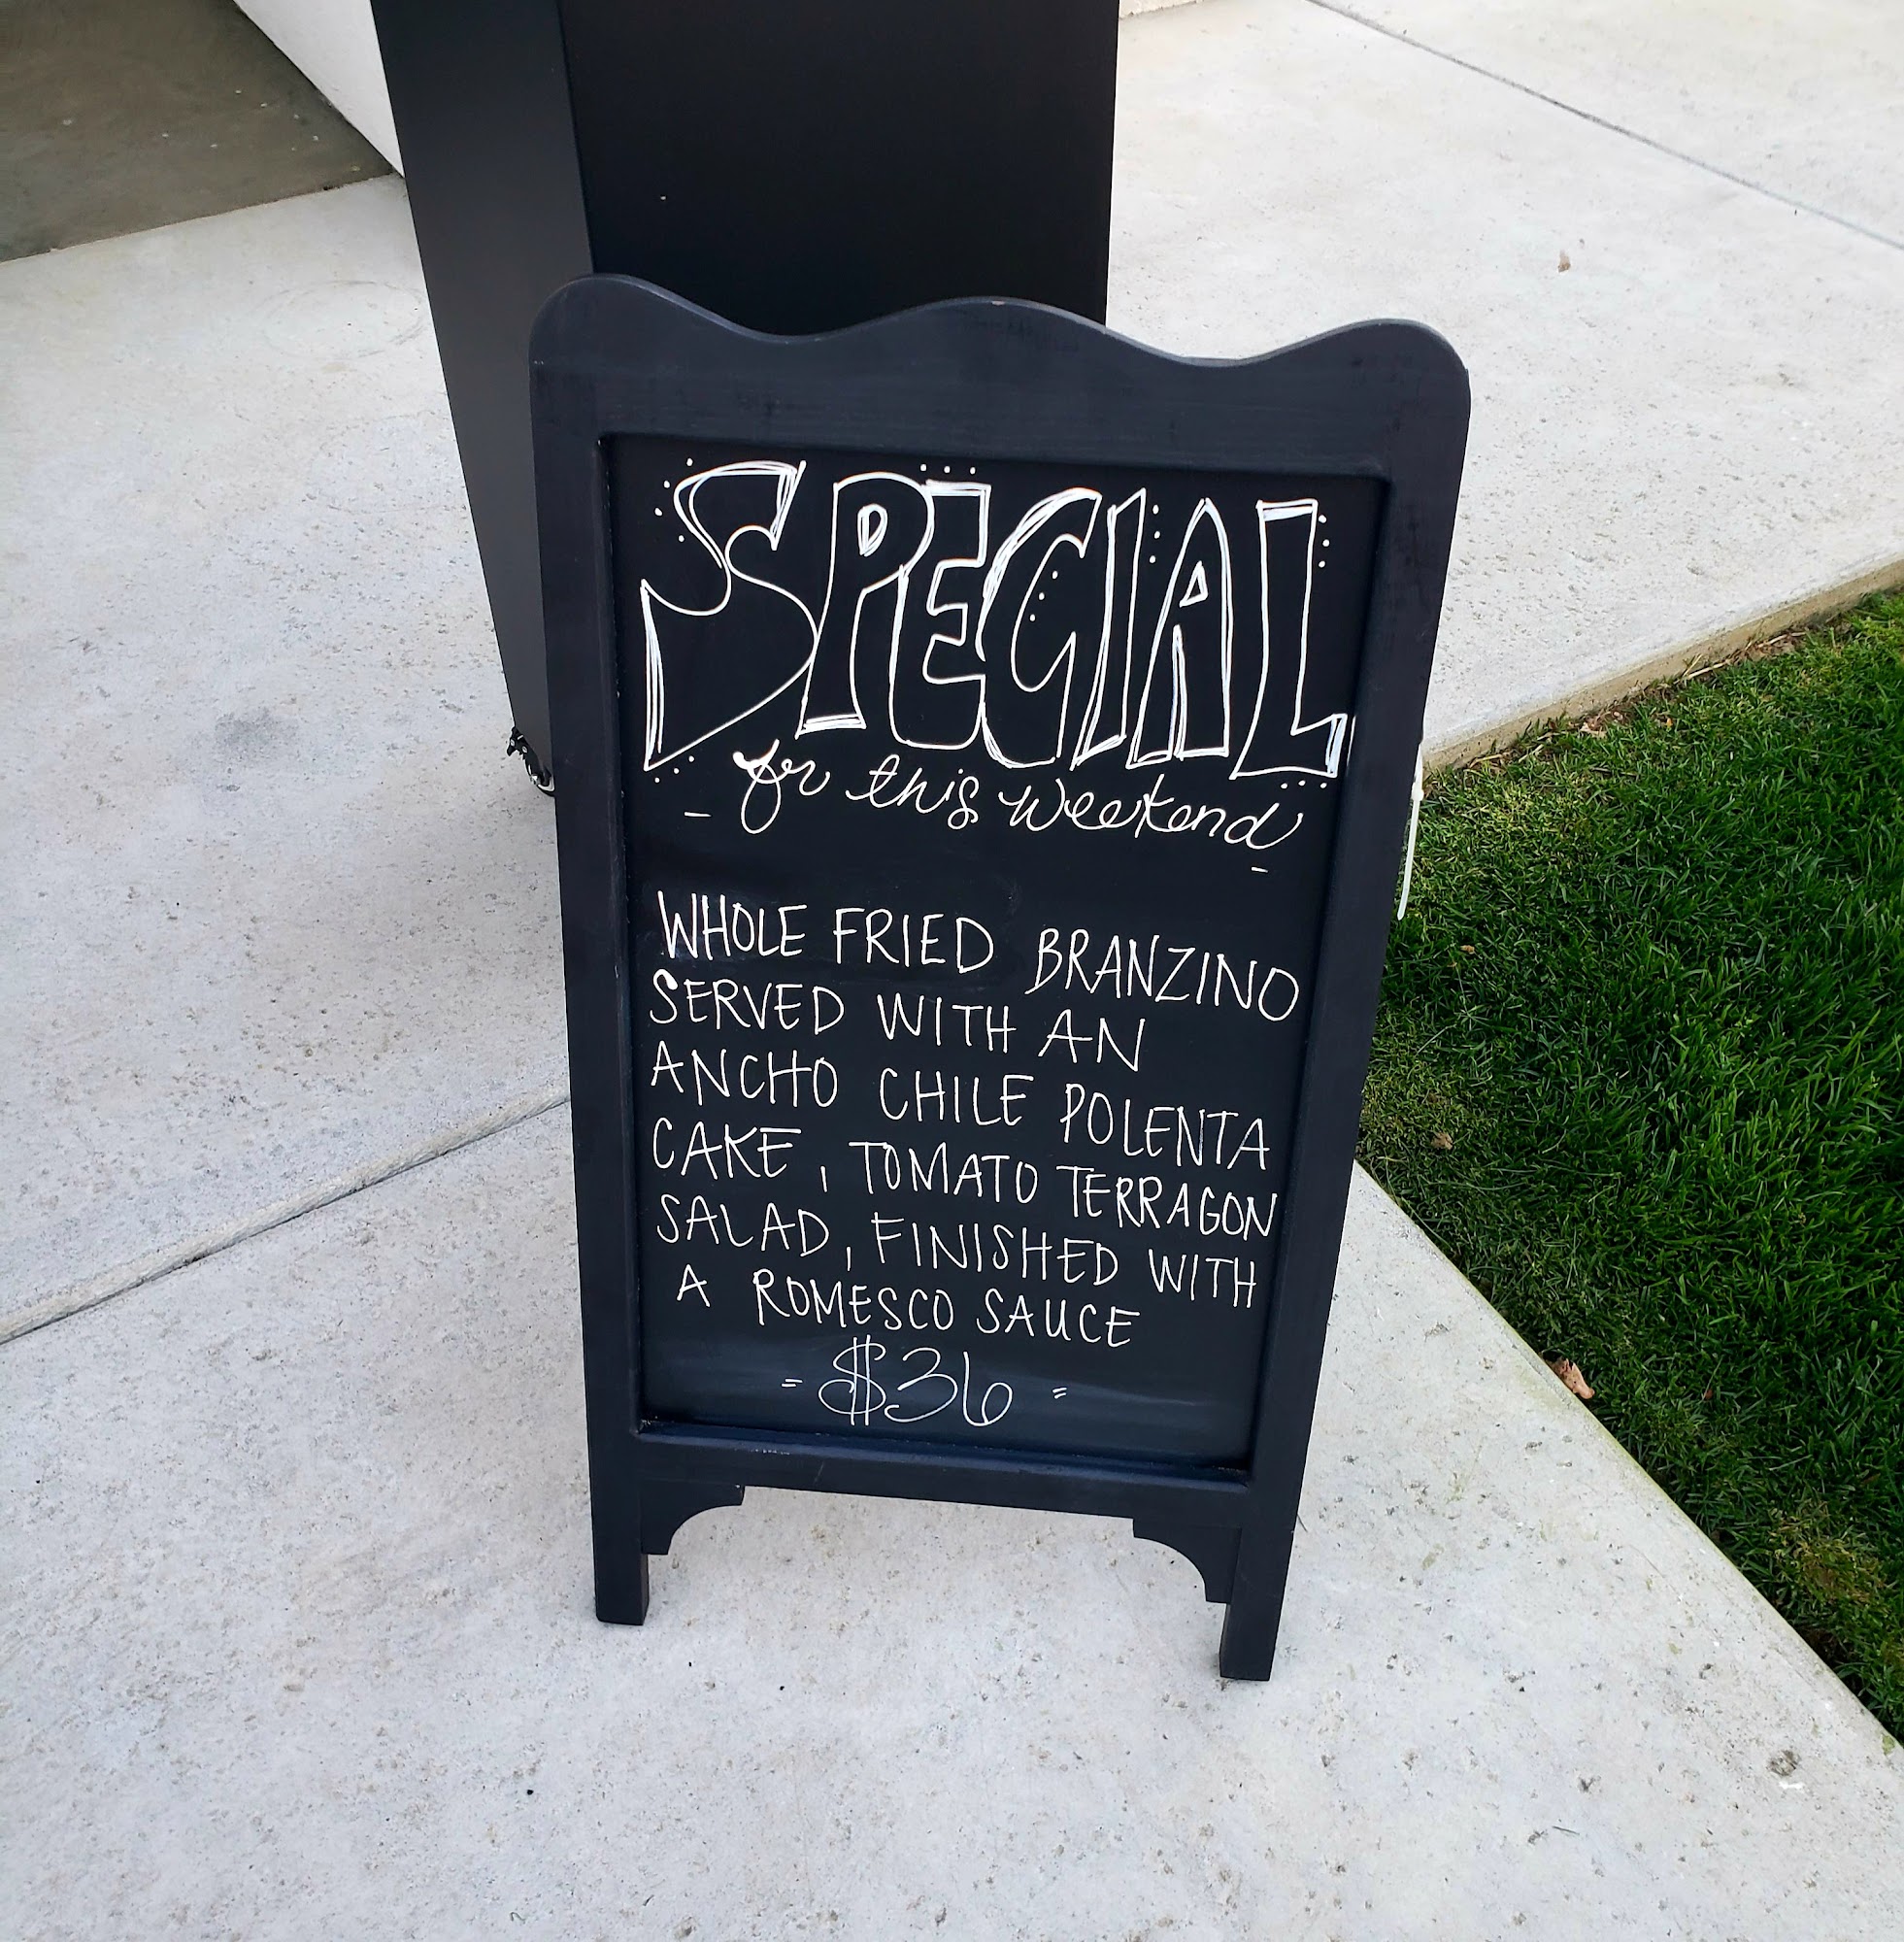 SPECIAL
- for this weekend -
WHOLE FRIED BRANZINO
SERVED WITH AN
ANCHO CHILE POLENTA
CAKE, TOMATO TERRAGON
SALAD, FINISHED WITH
A ROMESCO SAUCE
= $36 =